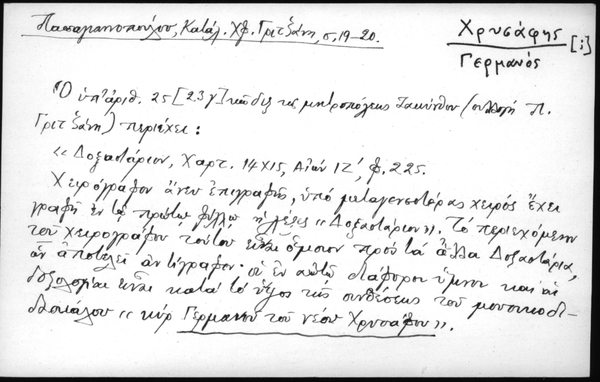 Παπαγιαννοπούλου, Κατάλ. Χφ. Γριτσάνη, σ. 19-20.
Χρυσάφης [i]
Γερμανός
Ὁ ὑπ' ἀριθ. 25 [23γ] κῶδιξ τῆς μητροπόλεως Ζακύνθου (συλλογή Π.
Γριτσάνη) περιέχει:
«Δοξαστάριον, Χαρτ. 14Χ15, Αἰών ΙΖ', φ. 225.
Χειρόγραφον ἄνευ ἐπιγραφῆς, ὑπό μεταγενεστέρας χειρός ἔχει
γραφῆ ἐν τῷ πρώτῳ φύλλῳ ἡ λέξις «Δοξαστάριον». Τό περιεχόμενον
τοῦ χειρογράφου τούτου εἶναι ὅμοιον πρός τά ἄλλα Δοξαστάρια,
ἄν ἀποτελεῖ ἀντίγραφον· οἱ ἐν αὐτῷ διάφοροι ὕμνοι καί αἱ
δοξολογίαι εἶναι κατά τό ὕφος τῆς συνθέσεως τοῦ μουσικοδι-
δασκάλου «κύρ Γερμανοῦ τοῦ νέου Χρυσάφου».